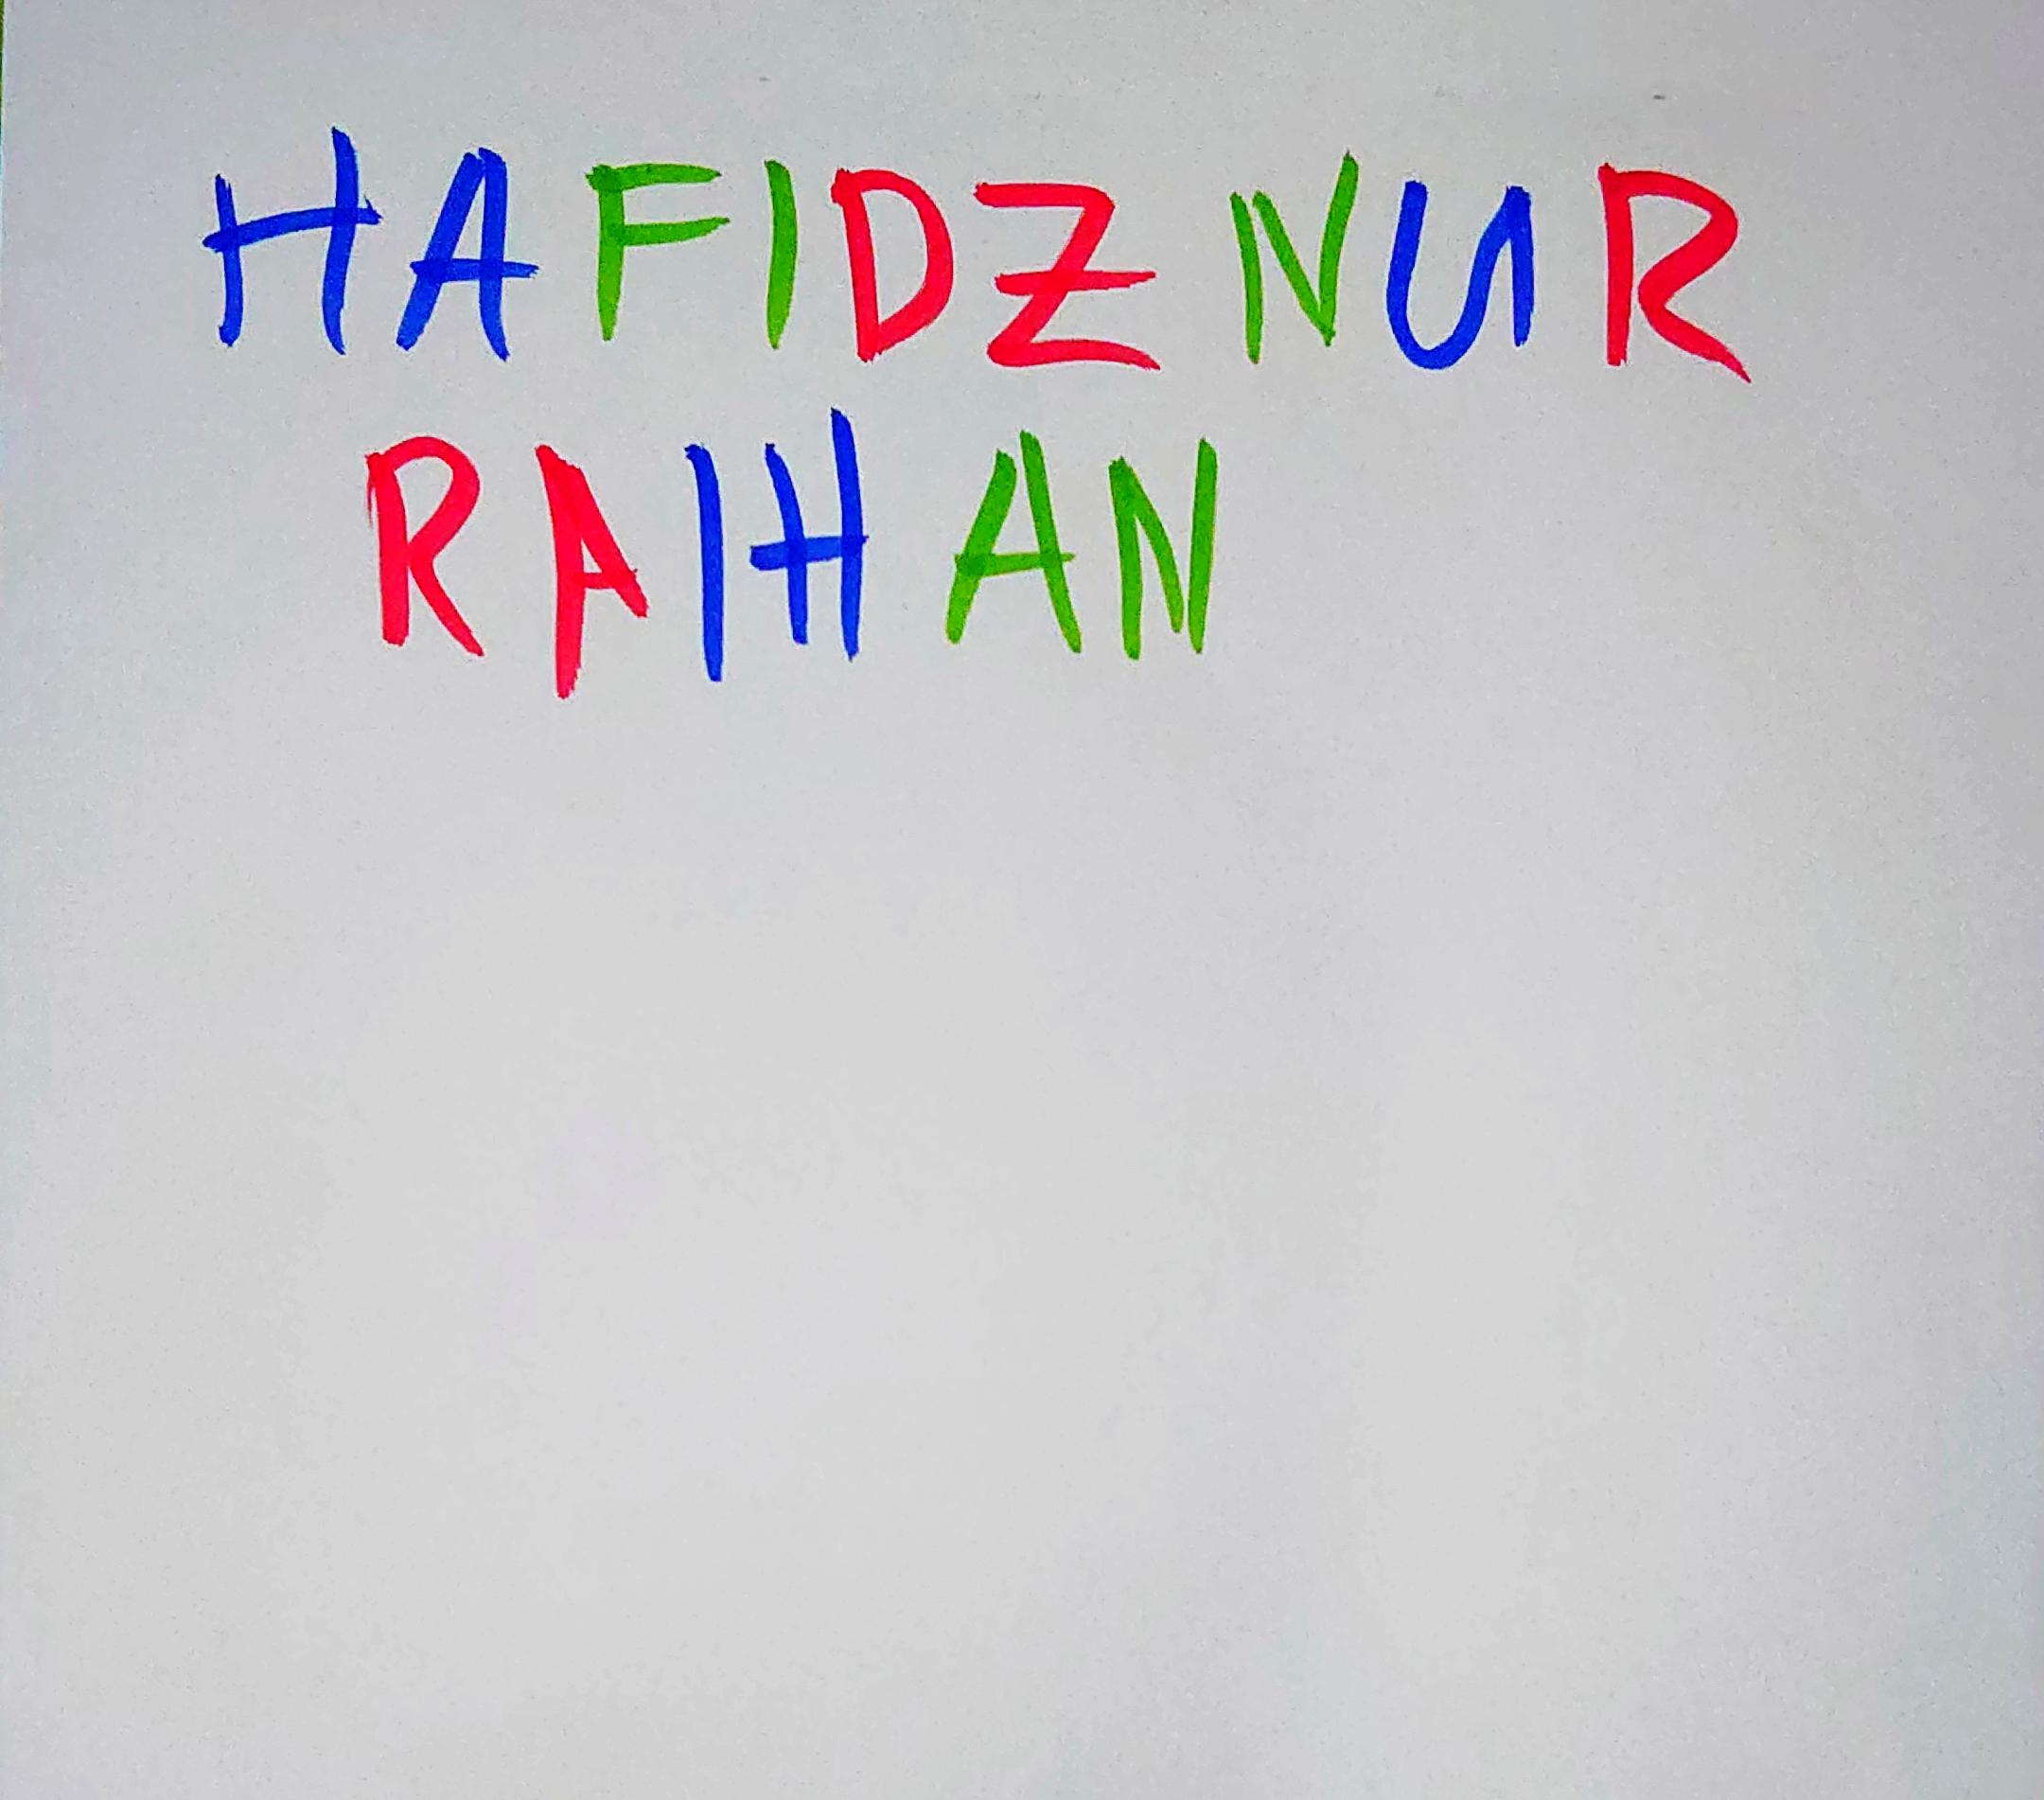 HAFIDZ NUR
RAIHAN